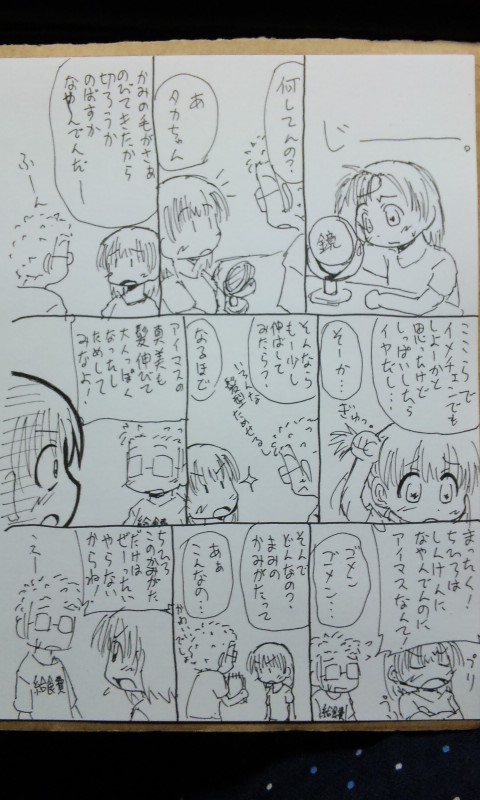 じ――――。
鏡
何してんの?
あ
タカちゃん
かみの毛がさぁ
のびてきたから
切ろうか
のばすか
なやんでんだー
ふーん
ここらで
イメイチェンでも
しよーかと
思ったけど
しっぱいしたら
イヤだし…
そーか…
ぎゅっ
そんなら
もー少し
伸ばして
みたら?
なるほど
いろんな
髪型だがせるし
アイマスの
真美も
髪伸びて
大人っぽく
なったし
ためして
みなよ!
給食費
まっちく!
ちひろは
しんけんに
なやんでんのに
アイマスなんて!
ゴメン
ゴメン…
プリ
プリ
給食費
そんで
どんなの?
まみの
かみがたって
あぁ
こんなの…
かわいいでしょ
ちひろ
このかみがた
だけは
ぜーったい
やらない
からね!
えー
給食費